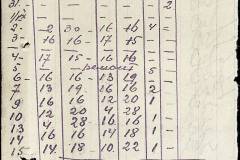 31.- - - - - - 2
2 - 2 30 - 16 16 4 =
3 - 16 16 - 17 15 - -
4 - 17 15 - 16 16 - -
5 - ремонт -
6 - 16 16 - 13 19 5
7 13 19 - 16 16 2 -
9 16 16 12 20 1 -
10 12 20 4 28
13 4 28 - 16 16 1 -
14 16 16 14 18 1 -
15 - 14 18 - 10 22 1 -